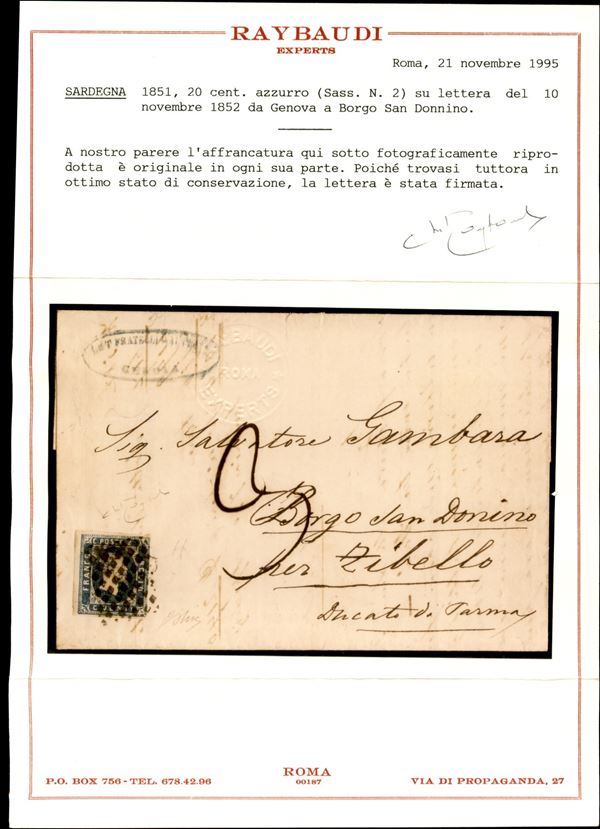 RAYBAUDI
EXPERTS
Roma, 21 novembre 1995
SARDEGNA 1851, 20 cent. azzurro (Sass. N. 2) su lettera del 10
novembre 1852 da Genova a Borgo San Donnino.
A nostro parere l'affrancatura qui sotto fotograficamente ripro-
dotta è originale in ogni sua parte. Poiché trovasi tuttora in
ottimo stato di conservazione, la lettera è stata firmata.
FRATELLI
GENOVA
RAYBAUDI
ROMA
EXPERTS
Sig. Salvatore Gambara
Borgo San Donino
per Zibello
Ducato di Parma
C. POSTE
FRANCO
ROMA
00187
P.O. BOX 756 - TEL. 678.42.96
VIA DI PROPAGANDA, 27